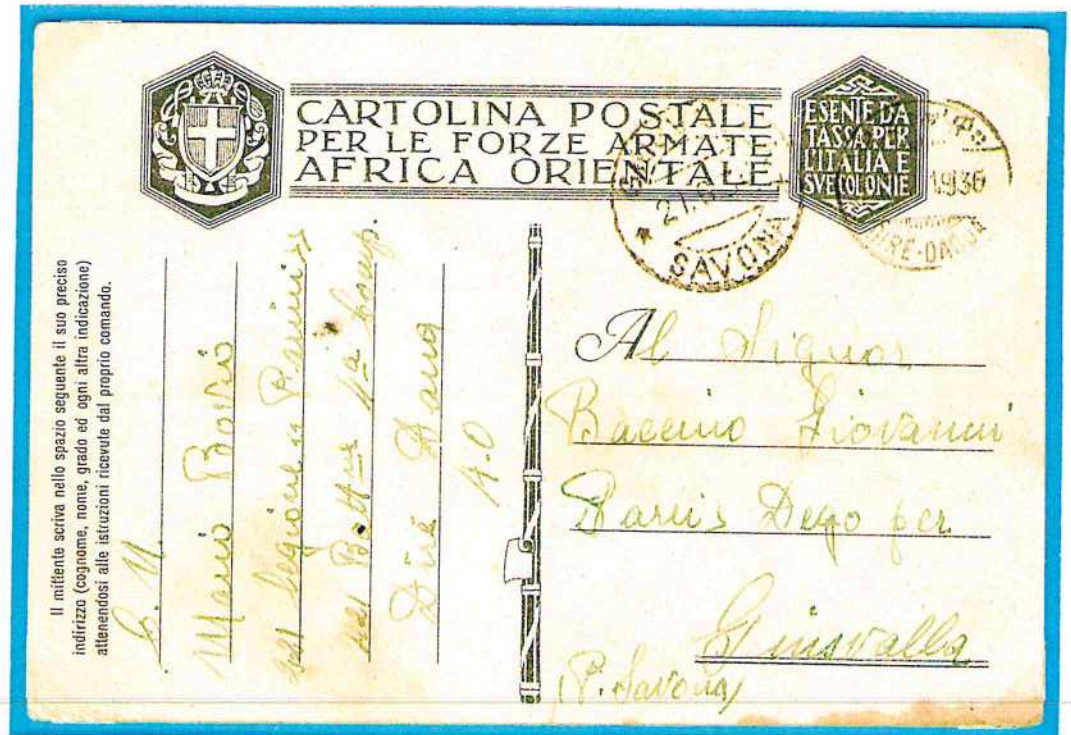 CARTOLINA POSTALE
PER LE FORZE ARMATE
AFRICA ORIENTALE
ESENTE DA
TASSA PER
L'ITALIA E
SVE COLONIE
SAVONA
Il mittente scriva nello spazio seguente il suo preciso
indirizzo (cognome, nome, grado ed ogni altra indicazione)
attenendosi alle istruzioni ricevute dal proprio comando.
Mario
Legione
1ª
Dire Daua
A.O
Al Signor
Baccino Giovanni
Dego per
Giusvalla
(P. Savona)